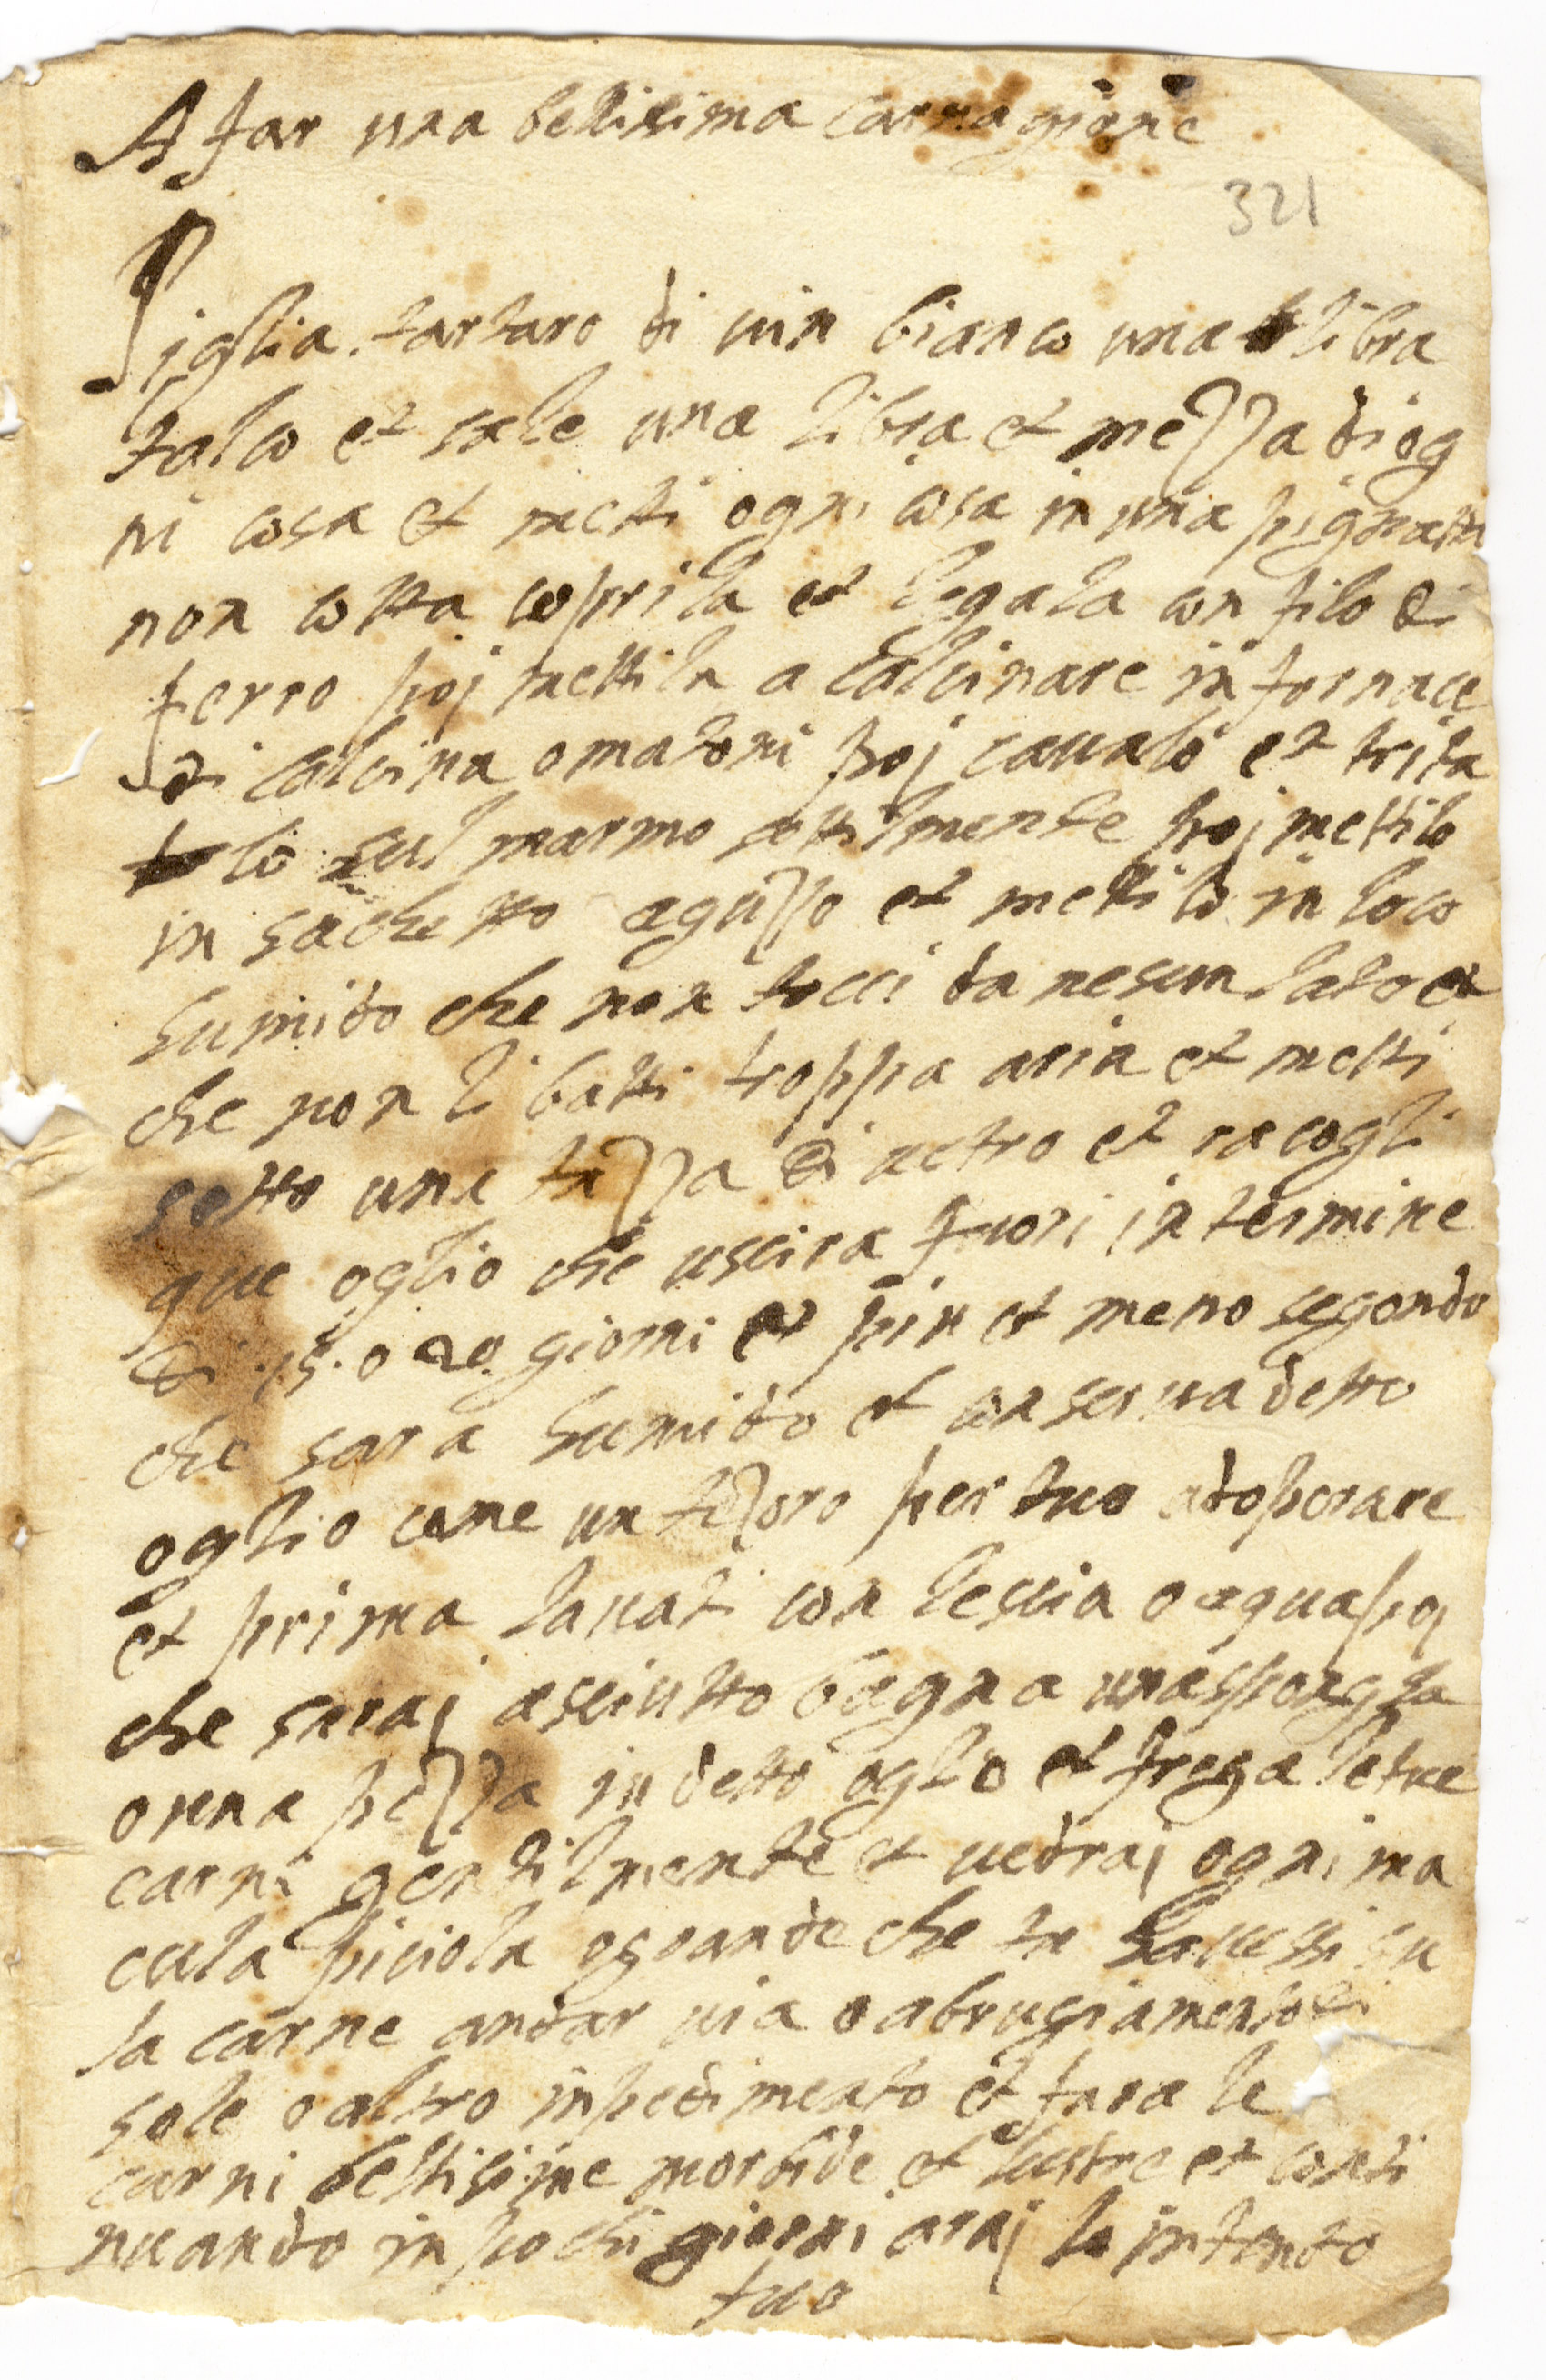 A far una bellisima carnagione
321
Piglia tartaro di uin bianco una libra
talco et sale una libra et mezza di og
ni cosa et metti ogni cosa in una pignatta
non cotta coprila et legala con filo di
ferro poj mettila a calcinare in fornace
di calcina o matoni poj caualo et trita
lo sul marmo sotilmente poj metilo
in sachetto aguzzo et mettilo in loco
humido che non tocci da nesun lato et
che non li batti troppa aria et metti
sotto una tazza di uetro et racogli
que oglio che uscira fuori in termine
di .15. o 20 giorni et piu et meno segondo
che sara humido et conserua detto
oglio come un tezoro per tuo adoperare
et prima lauati con lesciia o aqua poj
che saraj asciutto bagna una spongha
o una pezza in detto oglio et frega le tue
carni gentilmente et uedraj ogni ma
cula piciola o grande che tu hauessi su
la carne andar uia o abrugiamento di
sole o altro inpedimento et fara le
carni bellisime morbide et lustre et conti
nuando in pochi giorni araj lo intento
tuo